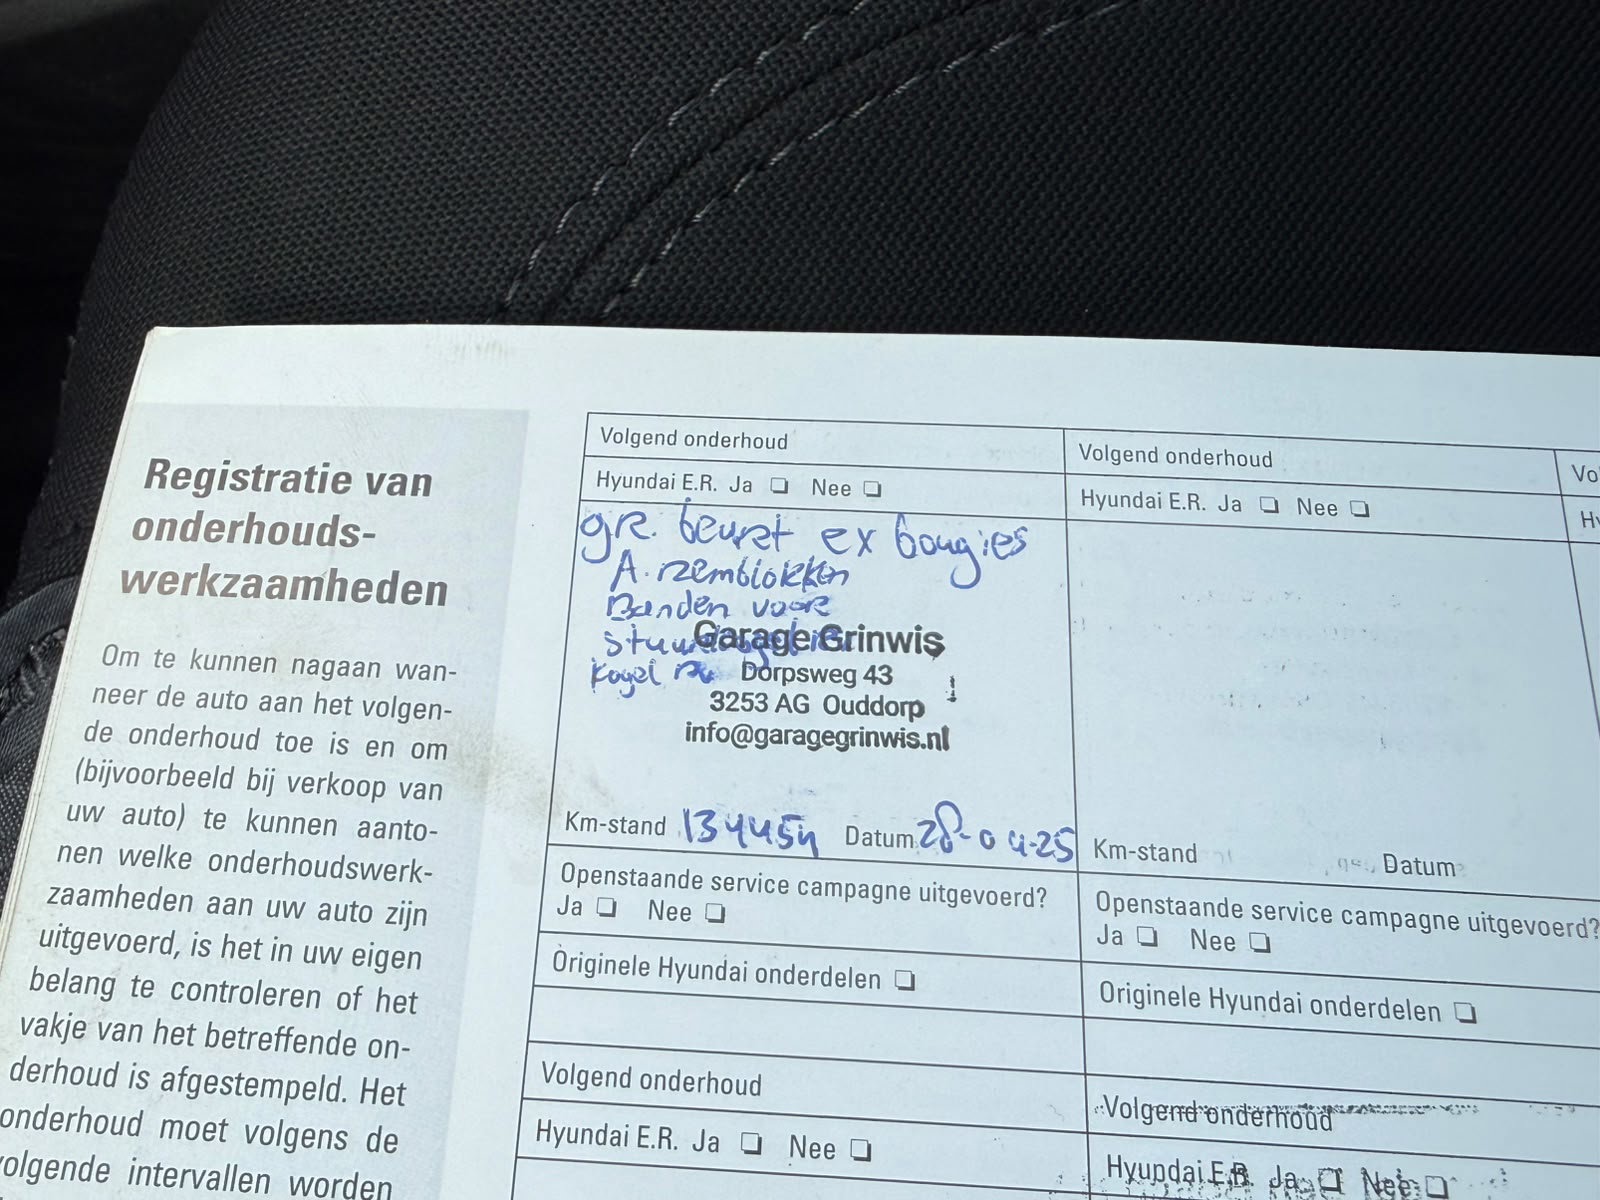 Registratie van
onderhouds-
werkzaamheden
Om te kunnen nagaan wan-
neer de auto aan het volgen-
de onderhoud toe is en om
(bijvoorbeeld bij verkoop van
uw auto) te kunnen aanto-
nen welke onderhoudswerk-
zaamheden aan uw auto zijn
uitgevoerd, is het in uw eigen
belang te controleren of het
vakje van het betreffende on-
derhoud is afgestempeld. Het
onderhoud moet volgens de
volgende intervallen worden
Volgend onderhoud
Hyundai E.R. Ja ❏ Nee ❏
gR. beurt ex bougies
A. remblokken
Banden voor
Kogel
Garage Grinwis
Dorpsweg 43
3253 AG Ouddorp
info@garagegrinwis.nl
Km-stand 134454 Datum 28-04-25
Openstaande service campagne uitgevoerd?
Ja ❏ Nee ❏
Originele Hyundai onderdelen ❏
Volgend onderhoud
Hyundai E.R. Ja ❏ Nee ❏
Volgend onderhoud
Hyundai E.R. Ja ❏ Nee ❏
Km-stand Datum
Openstaande service campagne uitgevoerd?
Ja ❏ Nee ❏
Originele Hyundai onderdelen ❏
Volgend onderhoud
Hyundai E.R. Ja ❏ Nee ❏